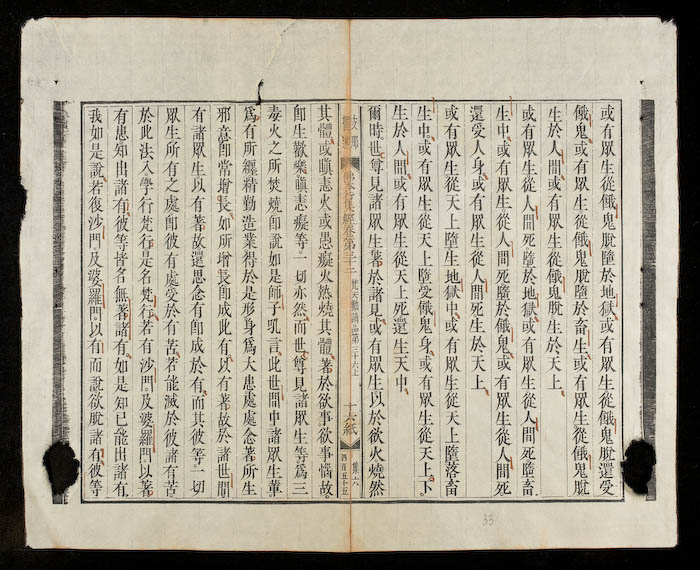 或有眾生從餓鬼脫墮於地獄或有眾生從餓鬼脫還受
餓鬼或有眾生從餓鬼脫墮於畜生或有眾生從餓鬼脫
生於人間或有眾生從餓鬼脫生於天上
或有眾生從人間死墮於地獄或有眾生從人間死墮畜
生中或有眾生從人間死墮於餓鬼或有眾生從人間死
還受人身或有眾生從人間死生於天上
或有眾生從天上墮生地獄中或有眾生從天上墮落畜
生中或有眾生從天上墮受餓鬼身或有眾生從天上下
生於人間或有眾生從天上死還生天中
爾時世尊見諸眾生著於諸見或有眾生以於欲火燒然
佛本行集經卷第三十三 梵天勸請品第三十六上 十六紙 集六
四百五十五
其體或瞋恚火或愚癡火然燒其體著於欲事欲事惱故
卽生歡樂瞋恚癡等一切亦然而世尊見諸眾生等為三
毒火之所焚燒卽說如是師子乳言此世間中諸眾生輩
為有所纏精勤造業得於是形身為大患處處念著所生
邪意卽常增長如所增長卽成此有以有著故於諸世間
有諸眾生以有著故還思念有卽成於有而其彼等一切
眾生所有之處卽彼有處受於有苦若能滅於彼諸有苦
於此法入學行梵行是名梵行若有沙門及婆羅門以著
有患知出諸有彼等皆名無著諸有如是知已能出諸有
我如是說若復沙門及婆羅門以有而說欲脫諸有彼等
33